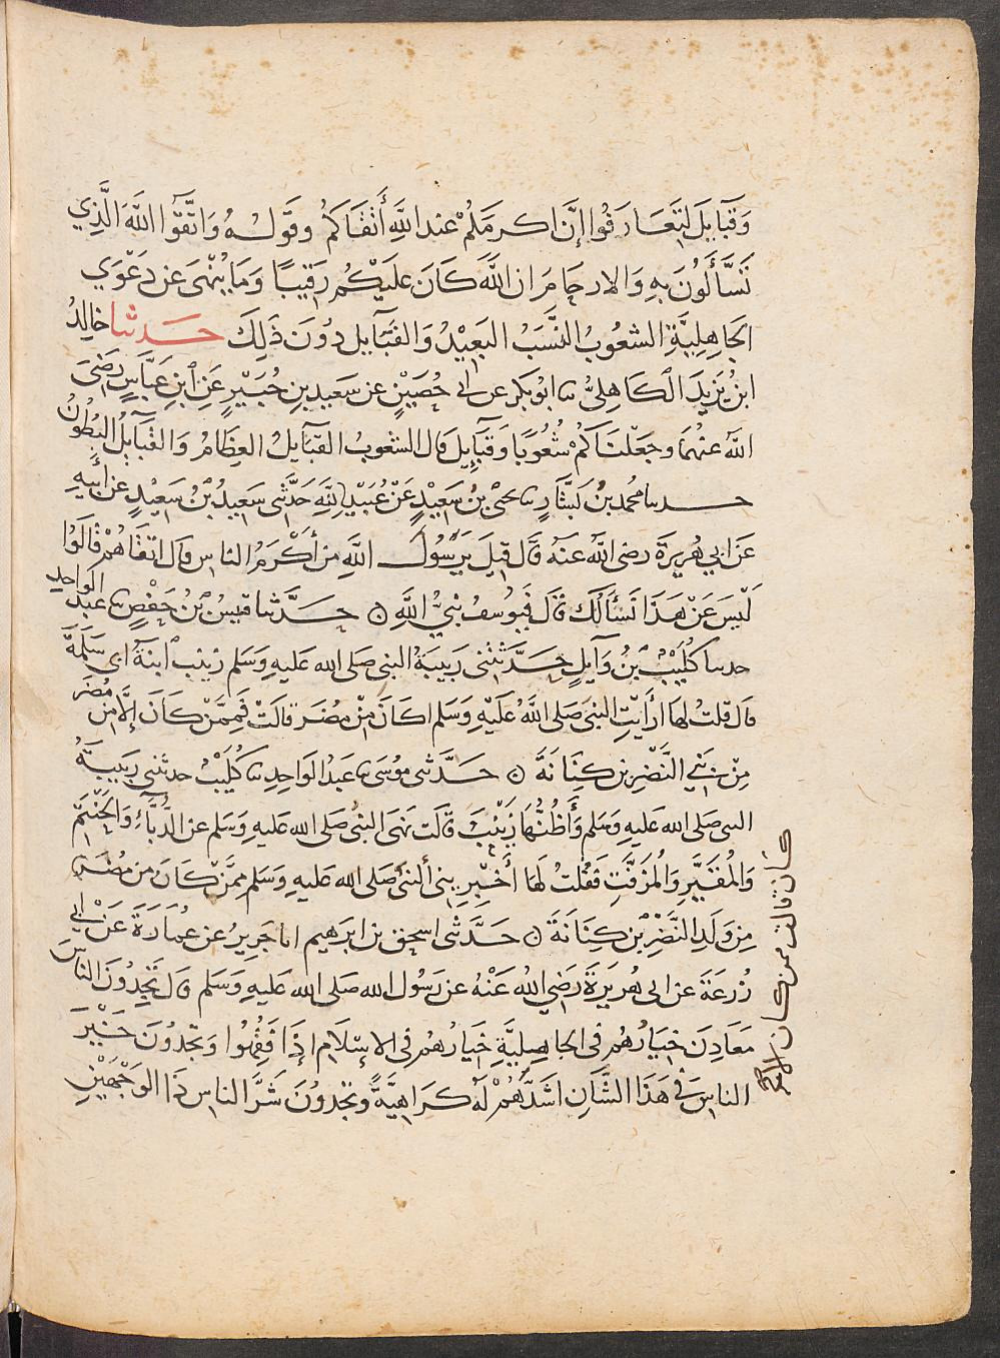 وَقَبَآيِلَ لِتَعَارَفُوا إِنَّ اكرمَكُمْ عند اللَّهِ أَتْقَاكُمْ وقَوْلُهُ وَاتَّقُوا اللَّهَ الَّذِي
تَسَّآلُونَ بِهِ وَالارحَامَ ان اللَّهَ كَانَ عَلَيْكُم رَقِيبًا وَمَا يُنْهَى عن دَعْوَي
الجاهِلِيَّةِ الشعُوبُ النَّسَبُ البَعِيْدُ وَالقَبَآيل دُونَ ذَلِكَ حَدثنا خالِدُ
ابنُ يَزِيدَ الكَاهِليُّ نا ابوُ بَكر عن ابى حُصَيْنٍ عن سَعِيدِ بنِ جُبَيْرٍ عَنِ ابنِ عَبَّاسٍ رَضىَ
اللهُ عنْهُمَا وجَعَلْنَاكُمْ شُعُوبًا وَقَبَآيِلَ قال الشعُوبُ القَبَآيلُ العِظَامُ وَالقَبَآيلُ البُطُونُ
حدثنا محُمد بنُ بَشَّارٍ نا يحيىَ بنُ سَعِيْدٍ عَنْ عُبَيْدِ اللهِ حَدَّثَنى سَعِيدُ بْنُ سَعِيْدٍ عن ابيهِ
عَن ابي هُرَيرَةَ رضى الله عنهُ قَالَ قِيلَ يَرَسُولَ اللَّهِ من أَكْرَمُ الناس قال اتقَاهُمْ قَالَوُا
لَيْسَ عَنْ هَذَا نَسْأَلُكَ قال فَيوُسفُ نَبيُّ اللَّهِ ۞ حَدَّثنا قيسُ بْنُ حَفْصٍ نا عبد الوَاحِدِ
حدثنا كُلَيْبُ بْنُ وَآيِلٍ حَدَّثَتْنى رَبيبَةُ النبى صَلى الله عَليهِ وَسَلم زينب ابنَةُ ابى سَلَمَةَ
قال قلتُ لهَا ارَأَيْتِ النبىَ صَلى اللَّهُ عَلَيْهِ وَسَلم اكَانَ مِنْ مُضَرَ قالَتْ فَمِمَّنْ كَانَ إلَّا مِن مُضَرَ
مِنْ بَنِي النَّضْرِ بن كِنَانَةَ ۞ حَدَّثنى مُوسَى نا عَبْدُ الوَاحِدِ نا كُلَيْبٌ حدثتنى رَبيبَةُ
النبى صَلى الله عَليهِ وَسَلم وَأَظُنُّهَا زَيْنَبَ قالَت نَهىَ النبىُ صَلى الله عَليهِ وَسَلم عن الدُّبَّآءِ وَالحَنْتَمِ
وَالمُقَيَّرِ وَالمُزَفَّتِ فَقلتُ لهَا أَخْبِرِينى ألنبىُ صَلى الله عَليهِ وَسَلم مِمَّنْ كَانَ من مُضَرَ
كان قالت فممن كان الا
مِن وَلَدِ النَّضْرِ بْن كِنَانَةَ ۞ حَدَّثنى اسحق بن ابرَهيم انا جَرِيرُ عن عُمَارَةَ عَنْ ابي
زُرعَةَ عن ابى هُرَيرَةَ رَضىَ اللهُ عَنْهُ عن رَسُولِ الله صَلى الله عَليهِ وَسَلم قال تَجِدُونَ الناسَ
مَعَادِنَ خيَارُهُم فى الجاهِلِيَّةِ خيَارُهُم فى الاسْلَام إِذَا فَقُهُوا وَتجدُونَ خَيْرَ
الناسِ فى هَذَا الشَّانِ اشَدَّهُمْ لَهُ كَرَاهِيَّةً وتجدُونَ شَرَّ الناس ذَا الوَجْهَيْنِ